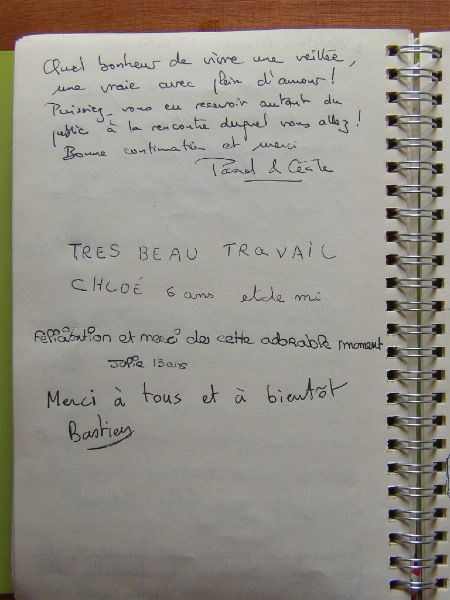 Quel bonheur de vivre une veillée,
une vraie avec plein d'amour !
Puissiez-vous en recevoir autant du
public à la rencontre duquel vous allez !
Bonne continuation et merci
& Cécile
TRES BEAU TRAVAIL
CHLOÉ 6 ans et de mi
et merci des cette adorable moment
13 ans
Merci à tous et à bientôt
Bastien